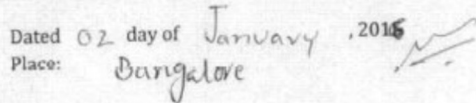 Dated 02 day of January , 201
Place: Bangalore